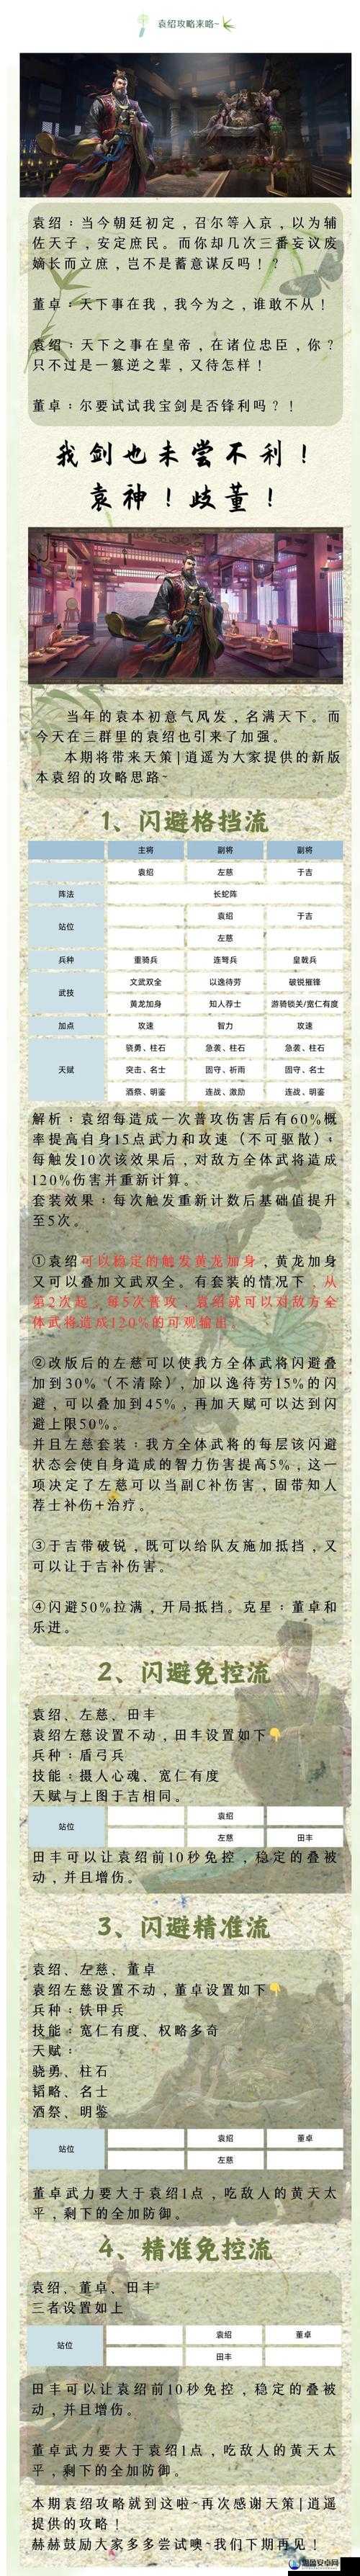 袁绍攻略来咯~
袁绍：当今朝廷初定，召尔等入京，以为辅
佐天子，安定庶民。而你却几次三番妄议废
嫡长而立庶，岂不是蓄意谋反吗！？
董卓：天下事在我，我今为之，谁敢不从！
袁绍：天下之事在皇帝，在诸位忠臣，你？
只不过是一篡逆之辈，又待怎样！
董卓：尔要试试我宝剑是否锋利吗？！
我剑也未尝不利！
袁神！歧董！
当年的袁本初意气风发，名满天下。而
今天在三群里的袁绍也引来了加强。
本期将带来天策|逍遥为大家提供的新版
本袁绍的攻略思路~
1、闪避格挡流
主将 副将 副将
袁绍 左慈 于吉
阵法 长蛇阵
站位 袁绍 于吉
左慈
兵种 重骑兵 连弩兵 皇戟兵
武技 文武双全 以逸待劳 破锐摧锋
黄龙加身 知人荐士 游骑锁关/宽仁有度
加点 攻速 智力 攻速
天赋 骁勇、柱石 急袭、柱石 急袭、柱石
突击、名士 固守、祈雨 固守、名士
酒祭、明鉴 连战、激励 连战、明鉴
解析：袁绍每造成一次普攻伤害后有60%概
率提高自身15点武力和攻速（不可驱散）；
每触发10次该效果后，对敌方全体武将造成
120%伤害并重新计算。
套装效果：每次触发重新计数后基础值提升
至5次。
①袁绍可以稳定的触发黄龙加身，黄龙加身
又可以叠加文武双全。有套装的情况下，从
第2次起，每5次普攻，袁绍就可以对敌方全
体武将造成120%的可观输出。
②改版后的左慈可以使我方全体武将闪避叠
加到30%（不清除），加以逸待劳15%的闪
避，可以叠加到45%，再加天赋可以达到闪
避上限50%。
并且左慈套装：我方全体武将的每层该闪避
状态会使自身造成的智力伤害提高5%，这一
项决定了左慈可以当副C补伤害，固带知人
荐士补伤+治疗。
③于吉带破锐，既可以给队友施加抵挡，又
可以让于吉补伤害。
④闪避50%拉满，开局抵挡。克星：董卓和
乐进。
2、闪避免控流
袁绍、左慈、田丰
袁绍左慈设置不动，田丰设置如下👇
兵种：盾弓兵
技能：摄人心魂、宽仁有度
天赋与上图于吉相同。
站位 袁绍
左慈 田丰
田丰可以让袁绍前10秒免控，稳定的叠被
动，并且增伤。
3、闪避精准流
袁绍、左慈、董卓
袁绍左慈设置不动，董卓设置如下👇
兵种：铁甲兵
技能：宽仁有度、权略多奇
天赋：
骁勇、柱石
韬略、名士
酒祭、明鉴
站位 袁绍 董卓
左慈
董卓武力要大于袁绍1点，吃敌人的黄天太
平，剩下的全加防御。
4、精准免控流
袁绍、董卓、田丰
三者设置如上
站位 袁绍 董卓
田丰
田丰可以让袁绍前10秒免控，稳定的叠被
动，并且增伤。
董卓武力要大于袁绍1点，吃敌人的黄天太
平，剩下的全加防御。
本期袁绍攻略就到这啦~再次感谢天策|逍遥
提供的攻略！
赫赫鼓励大家多多尝试噢~我们下期再见！